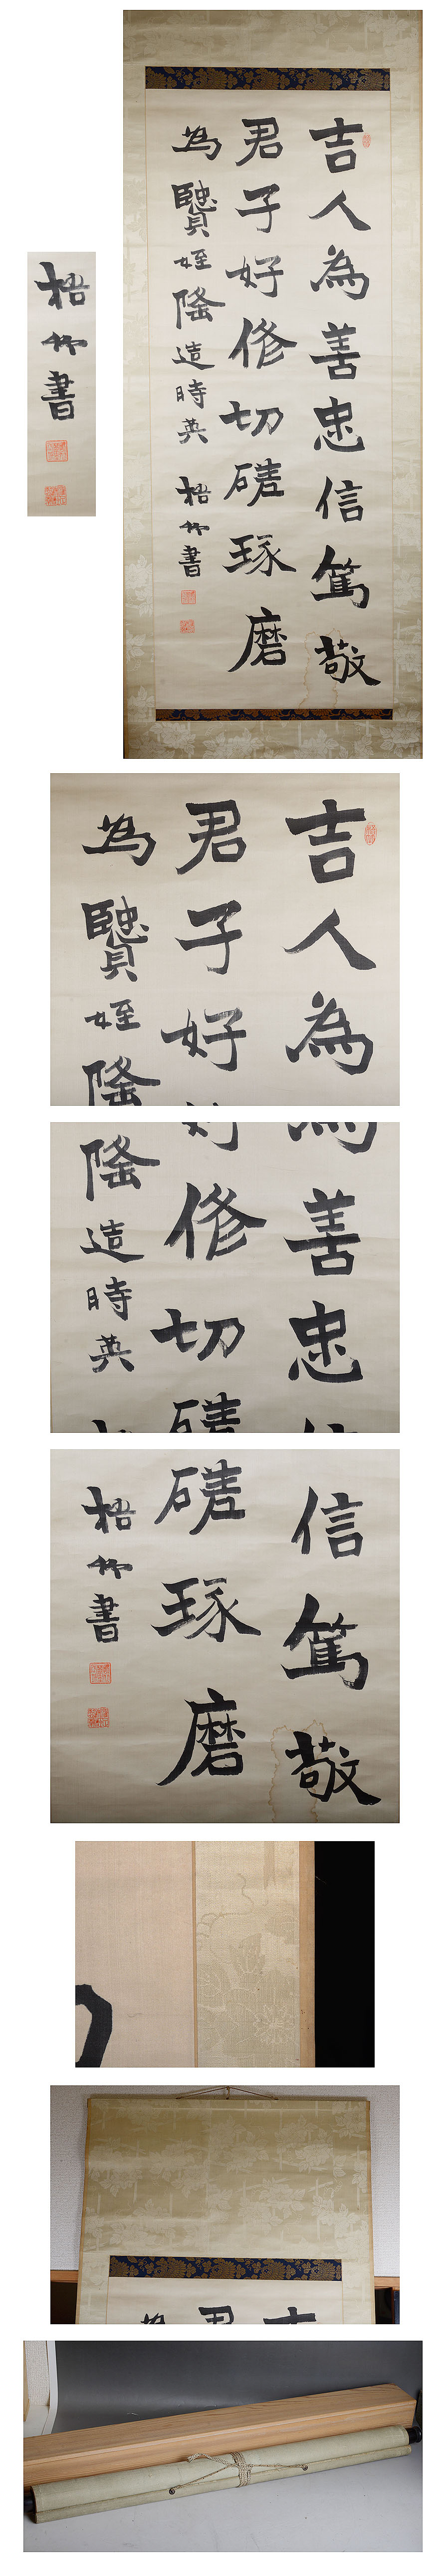 梧竹書
吉人為善忠信篤敬
君子好修切磋琢磨
為贒姪隆造時英 梧竹書
吉人為
君子好
為贒姪隆
為善忠
修切磋
隆造時英
信篤敬
磋琢磨
梧竹書